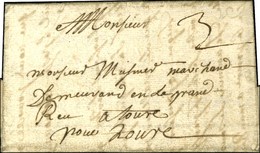 A Monsieur
3
monsieur Musnier marchand
Demeurand en la grand
Rue a tours
pour Tours